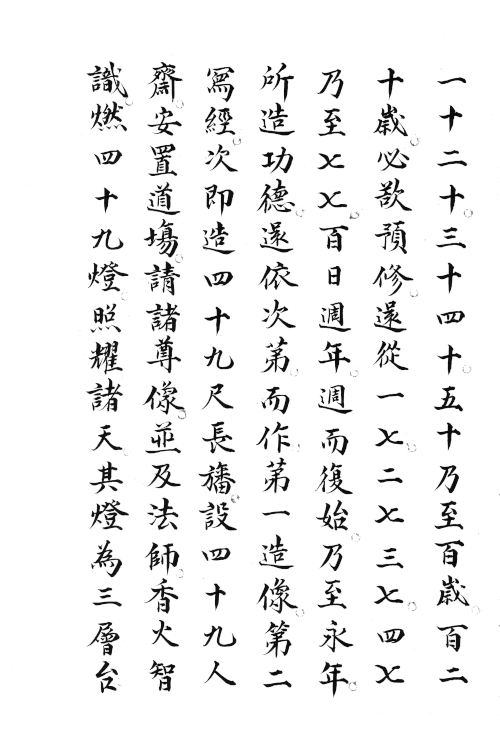 一十二十三十四十五十乃至百歳百二
十歳必欲預修還從一七二七三七四七
乃至七七百日週年週而復始乃至永年
所造功德還依次第而作第一造像第二
寫經次即造四十九尺長旛設四十九人
齋安置道場請諸尊像並及法師香火智
識燃四十九燈照耀諸天其燈為三層台